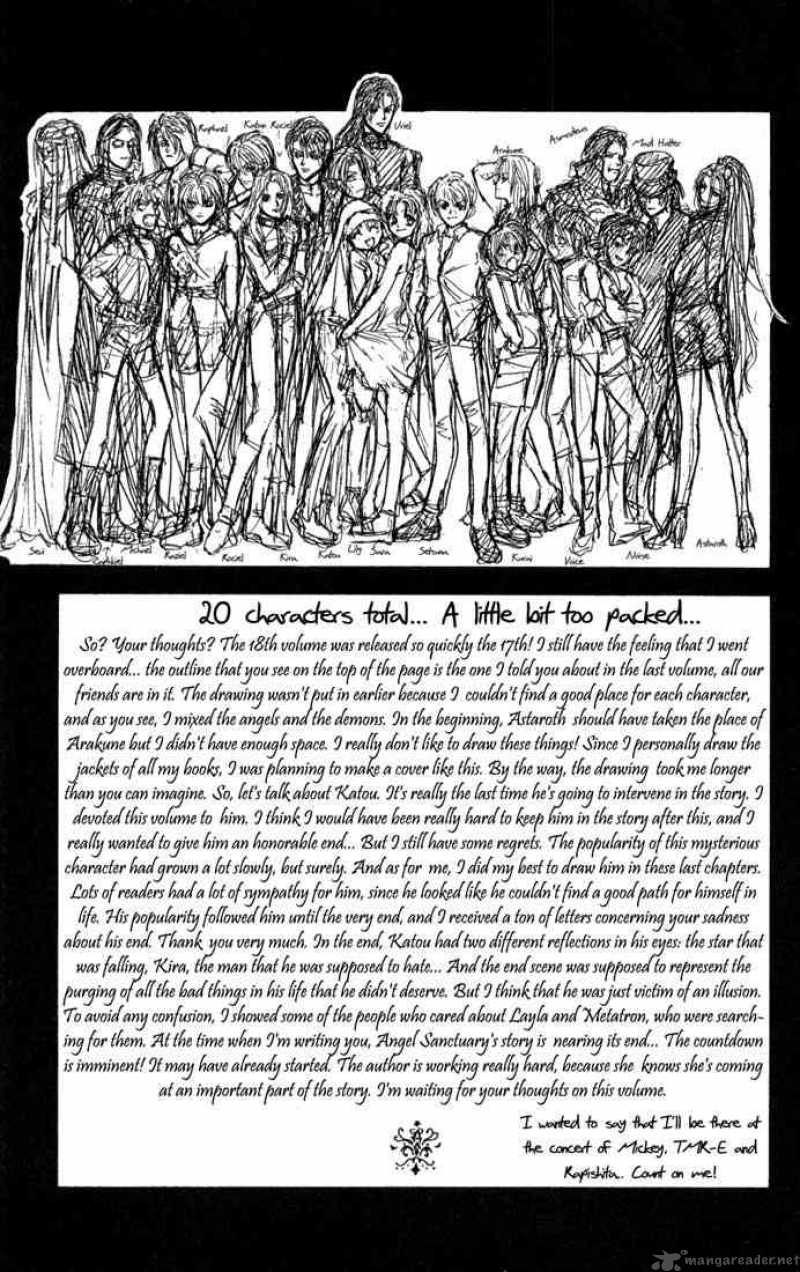 Raphael
Katan Rociel
Uriel
Arakune
Asmodeus
Mad Hatter
Sevi
Michael
Raziel
Rociel
Kira
Katou
Lily
Sara
Setsuna
Kurai
Voice
Noise
Astaroth
20 characters total... A little bit too packed...
So? Your thoughts? The 18th volume was released so quickly the 17th! I still have the feeling that I went
overboard... the outline that you see on the top of the page is the one I told you about in the last volume, all our
friends are in it. The drawing wasn't put in earlier because I couldn't find a good place for each character,
and as you see, I mixed the angels and the demons. In the beginning, Astaroth should have taken the place of
Arakune but I didn't have enough space. I really don't like to draw these things! Since I personally draw the
jackets of all my books, I was planning to make a cover like this. By the way, the drawing took me longer
than you can imagine. So, let's talk about Katou. It's really the last time he's going to intervene in the story. I
devoted this volume to him. I think I would have been really hard to keep him in the story after this, and I
really wanted to give him an honorable end... But I still have some regrets. The popularity of this mysterious
character had grown a lot slowly, but surely. And as for me, I did my best to draw him in these last chapters.
Lots of readers had a lot of sympathy for him, since he looked like he couldn't find a good path for himself in
life. His popularity followed him until the very end, and I received a ton of letters concerning your sadness
about his end. Thank you very much. In the end, Katou had two different reflections in his eyes: the star that
was falling, Kira, the man that he was supposed to hate... And the end scene was supposed to represent the
purging of all the bad things in his life that he didn't deserve. But I think that he was just victim of an illusion.
To avoid any confusion, I showed some of the people who cared about Layla and Metatron, who were search-
ing for them. At the time when I'm writing you, Angel Sanctuary's story is nearing its end... The countdown
is imminent! It may have already started. The author is working really hard, because she knows she's coming
at an important part of the story. I'm waiting for your thoughts on this volume.
I wanted to say that I'll be there at
the concert of Mickey, TMR-E and
Rapishita. Count on me!
mangareader.net